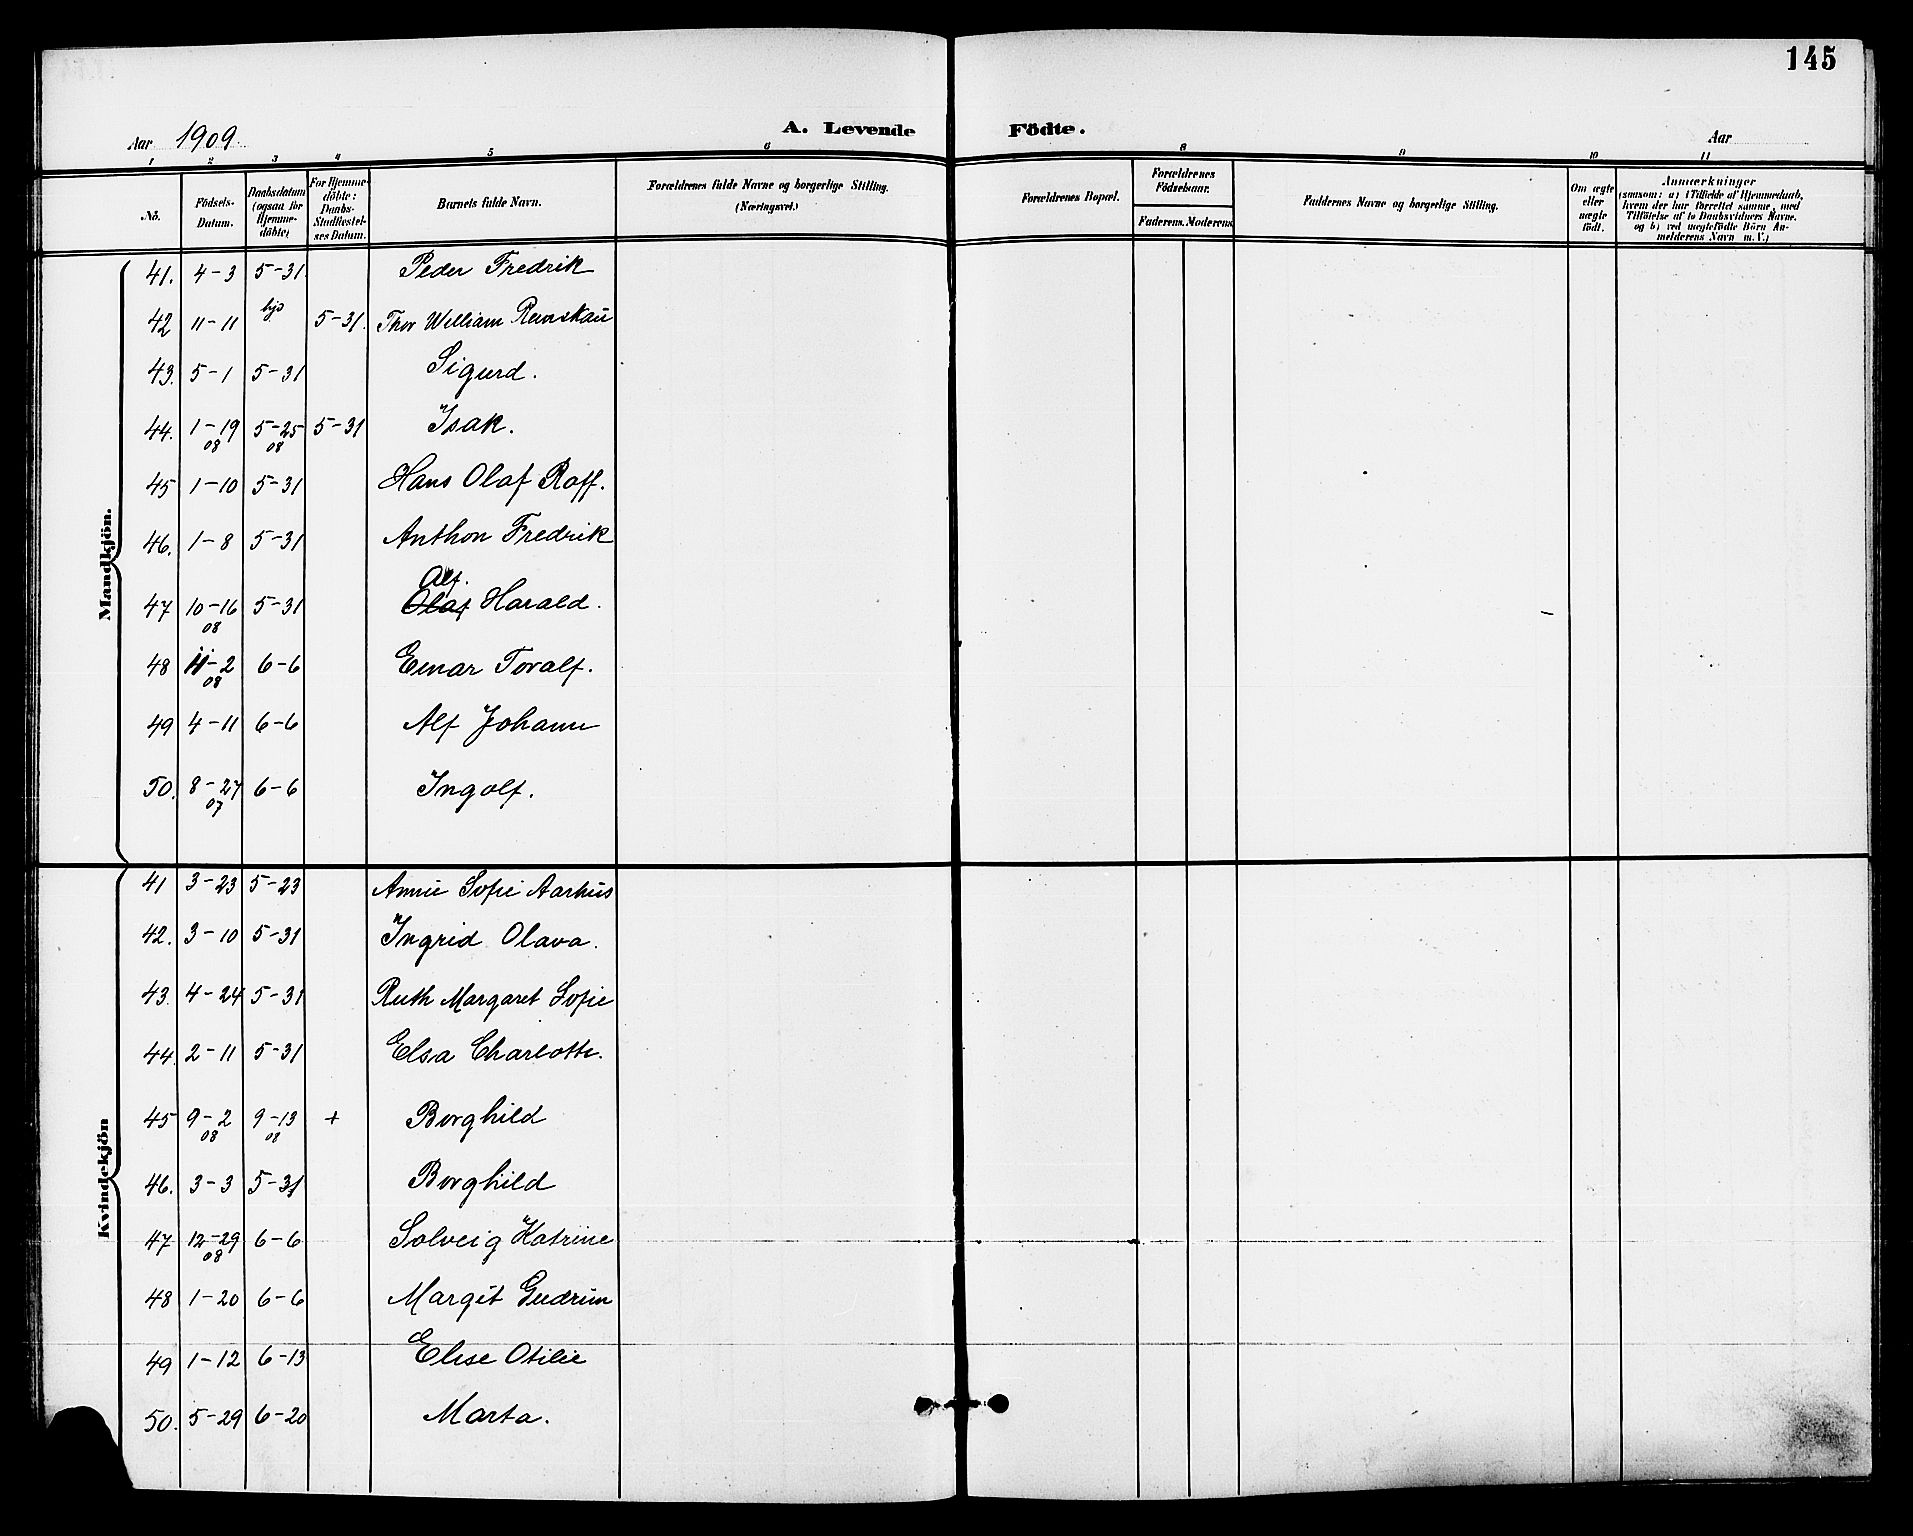 145
Aar 1909.
A. Levende Födte.
Aar
1 2 3 4 5 6 8 9 10 11
No.
Födsels-Datum.
Daabsdatum (ogsaa for Hjemmedöbte)
For Hjemmedöbte: Daabs-Stadfæstelses Datum.
Barnets fulde Navn.
Forældrenes fulde Navne og borgerlige Stilling. (Næringsvei.)
Forældrenes Bopæl.
Forældrenes Födselsaar.
Faderens. Moderens.
Faddernes Navne og borgerlige Stilling.
Om ægte eller uægte födt.
Anmærkninger (saasom: a) i Tilfælde af Hjemmedaab, hvem der har forrettet samme, med Tilföielse af to Daabsvidners Navne. og b) ved uægtefödte Börn Anmelderens Navn m. V.)
Mandkjön.
41. 4-3 5-31 Peder Fredrik
42 11-11 hjd 5-31. Thor William
43. 5-1 5-31 Sigurd.
44. 1-19 08 5-25 08 5-31 Isak.
45 1-10 5-31 Hans Olaf Roff.
46. 1-8 5-31 Anthon Fredrik
Alf.
47 10-16 08 5-31 Olaf Harald.
48 11-2 08 6-6 Einar Toralf.
49 4-11 6-6 Alf Johann
50. 8-27 07 6-6 Ingolf.
Kvindekjön
41 3-23 5-23 Annie Sofie Aarhus
42. 3-10 5-31 Ingrid Olava.
43. 4-24 5-31 Ruth Margaret Sofie
44. 2-11 5-31 Elsa Charlotte.
45 9-2 08 9-13 08 + Borghild
46. 3-3 5-31 Borghild
47 12-29 08 6-6 Solveig Katrine
48 1-20 6-6 Margit Gudrun
49 1-12 6-13 Elise Otilie
50. 5-29 6-20 Marta.